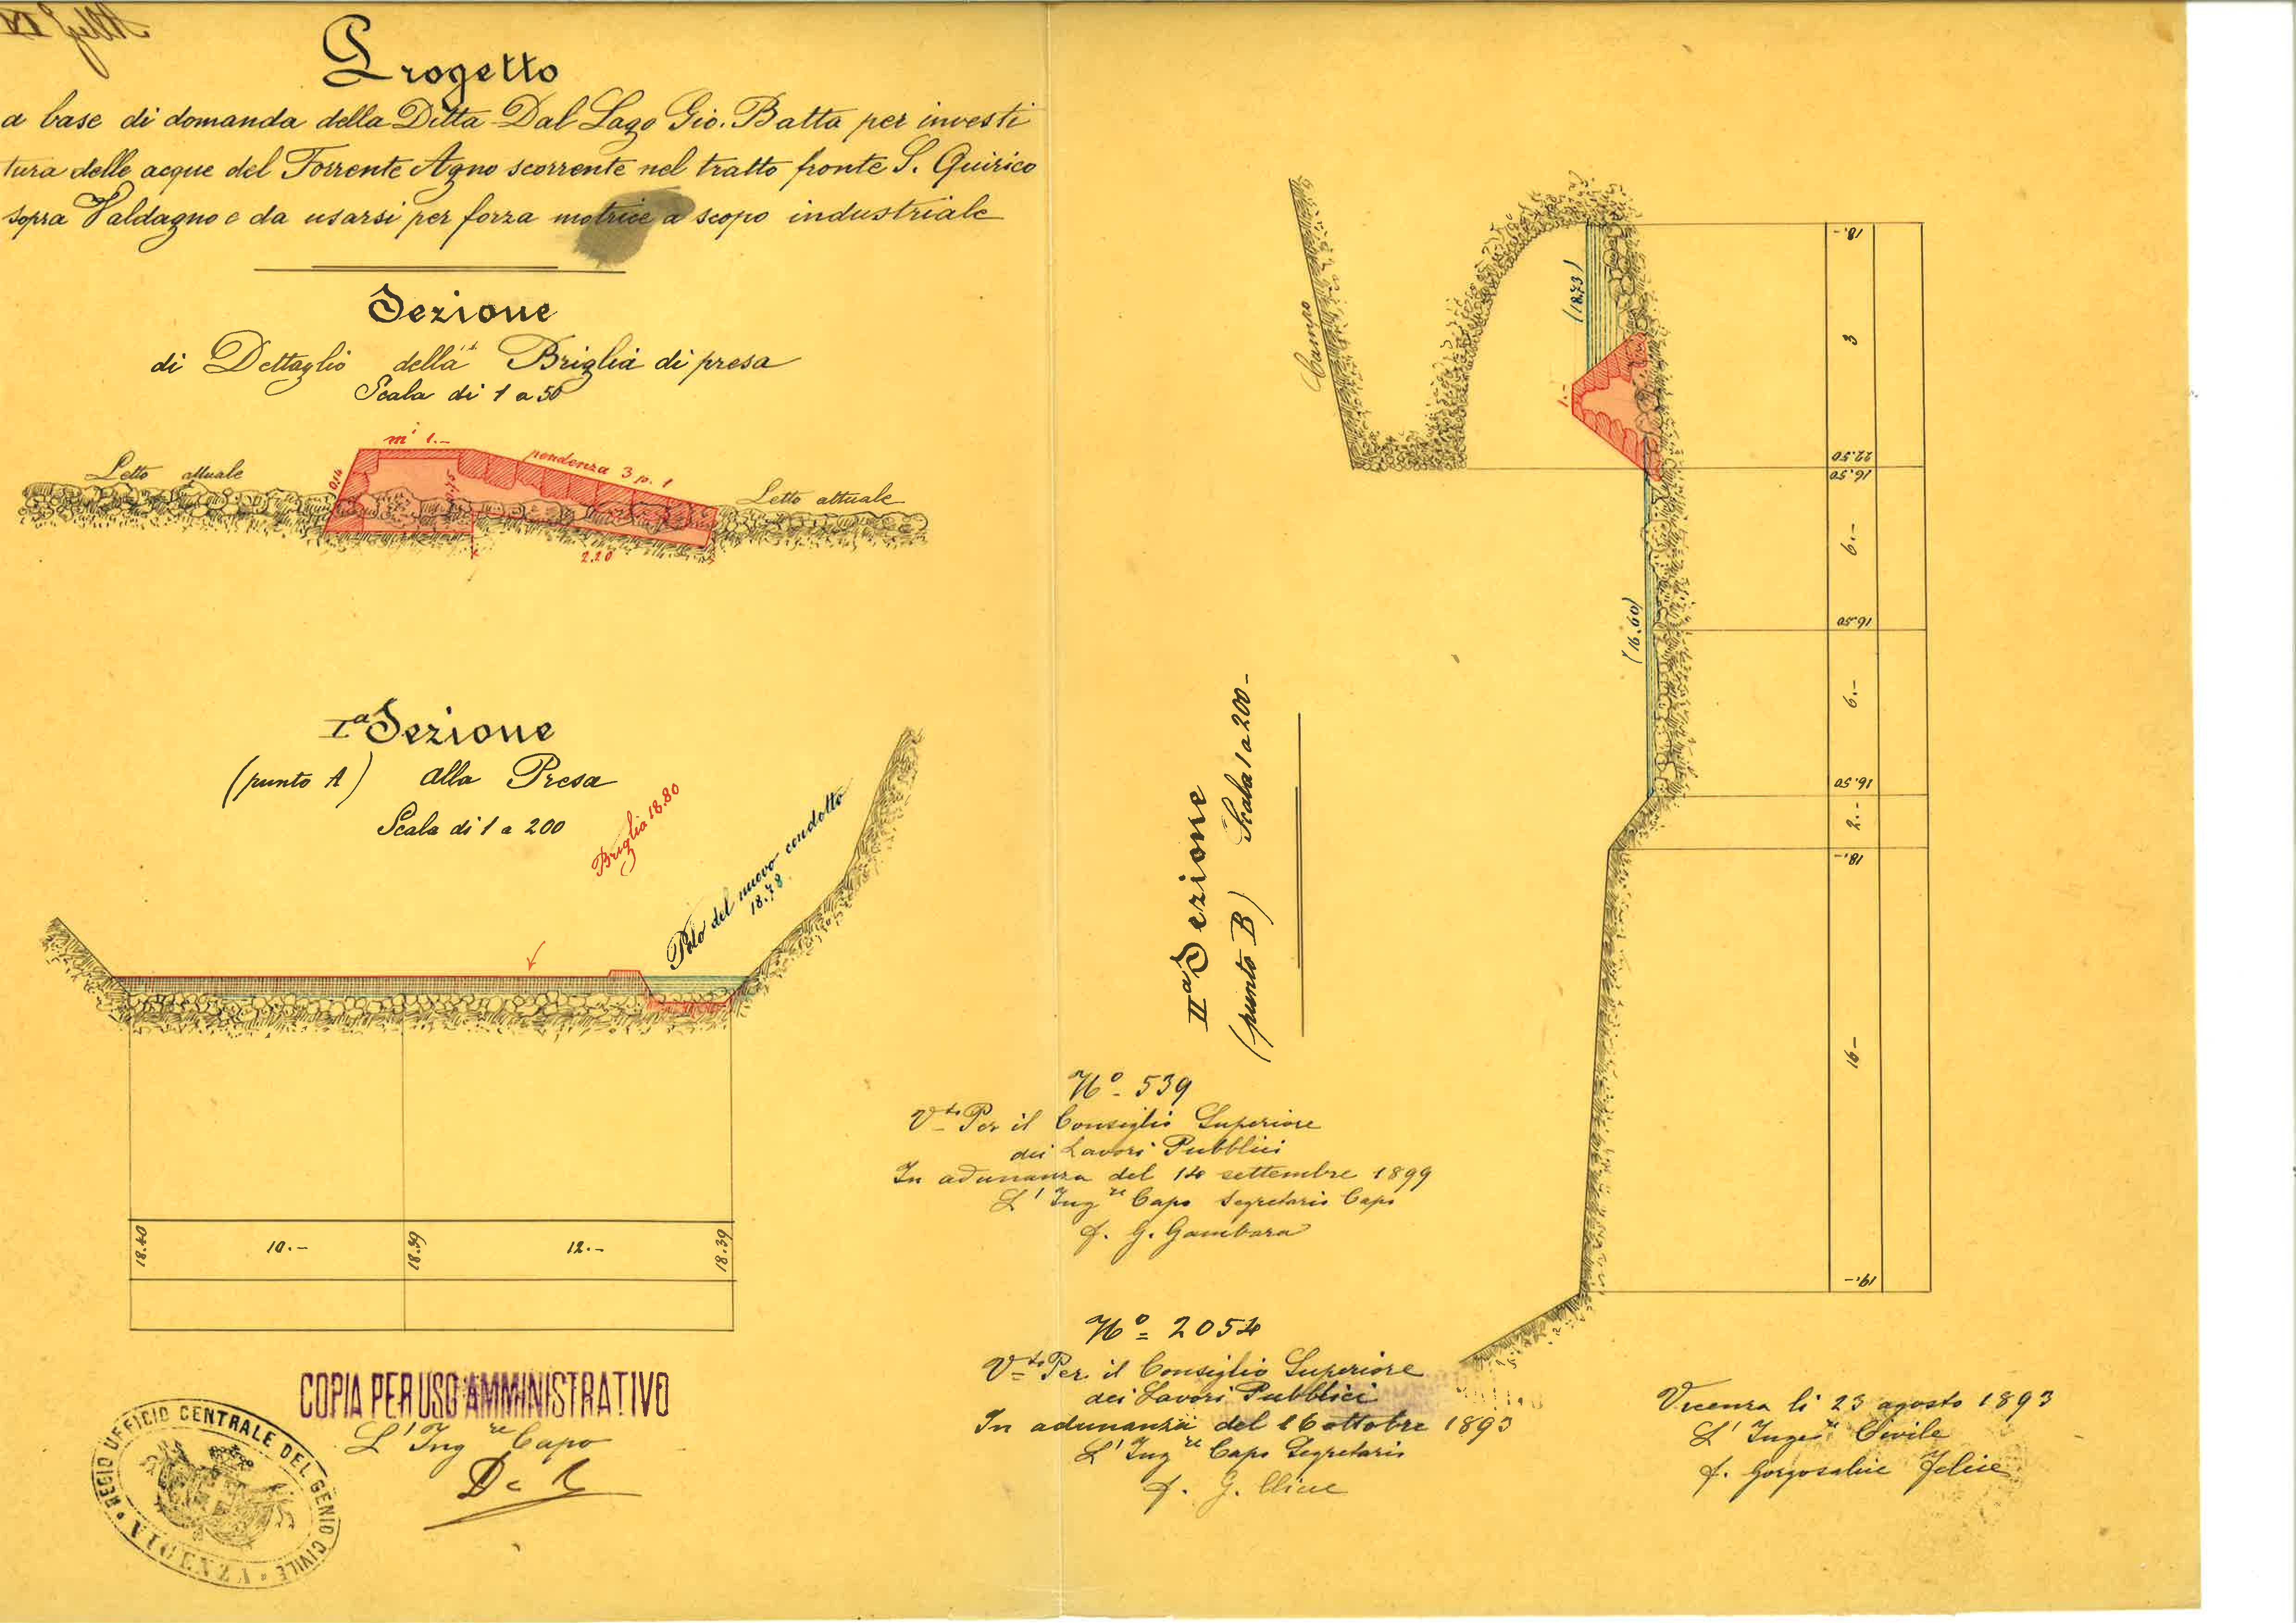 Progetto
a base di domanda della Ditta Dal Lago Gio. Batta per investi
tura delle acque del Torrente Agno scorrente nel tratto fronte S. Quirico
sopra Valdagno e da usarsi per forza motrice a scopo industriale
Sezione
di Dettaglio della Briglia di presa
Scala di 1 a 50
Letto attuale
0.14
mⁱ 1.-
pendenza 3 p. 1
Letto attuale
2.20
Iª Sezione
(punto A) alla Presa
Scala di 1 a 200
Briglia 18.80
Pelo del nuovo condotto
18.78
18.40
10.-
18.39
12.-
18.39
COPIA PER USO AMMINISTRATIVO
L'Ingʳᵉ Capo
REGIO UFFICIO CENTRALE DEL GENIO CIVILE
VICENZA
Campo
(18.73)
1.-
(16.60)
18.-
3
22.50
16.50
6.-
16.50
6.-
16.50
2.-
18.-
16-
19.-
IIª Sezione
(punto B) Scala 1 a 200-
Nº- 539
Vᵗᵒ Per il Consiglio Superiore
dei Lavori Pubblici
In adunanza del 14 settembre 1899
L'Ingʳᵉ Capo Segretario Capo
f. G. Gambara
Nº= 2054
Vᵗᵒ Per il Consiglio Superiore
dei Lavori Pubblici
In adunanza del 16 ottobre 1893
L'Ingʳᵉ Capo Segretario
f. G.
Vicenza li 23 agosto 1893
L'Ingeʳᵉ Civile
f. Felice